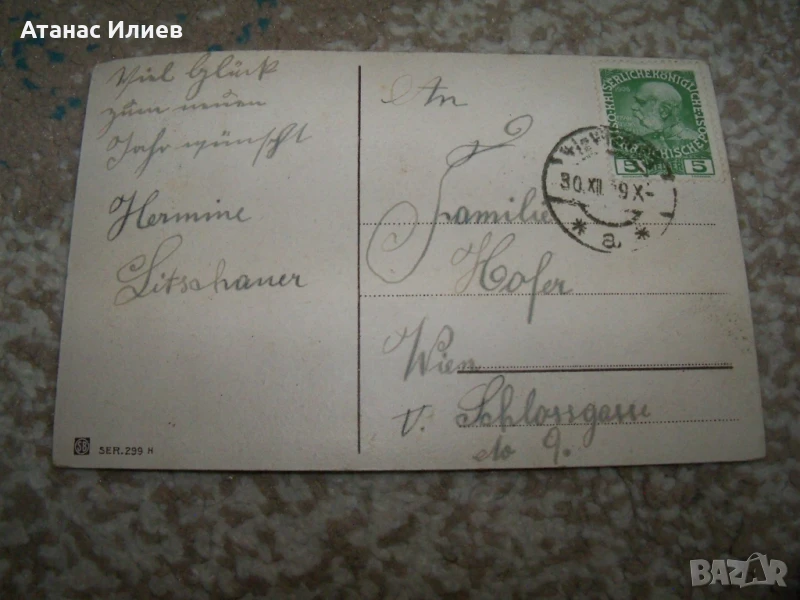 Атанас Илиев
Viel Glück
zum neuen
Jahr wünscht
Hermine
Litschauer
SER. 299 H
An
Familie
Hofer
Wien
V. Schlossgasse
No 9.
KAISERLICHE KÖNIGLICHE
5 5
30.XII 9X-
* a *
BAZAR